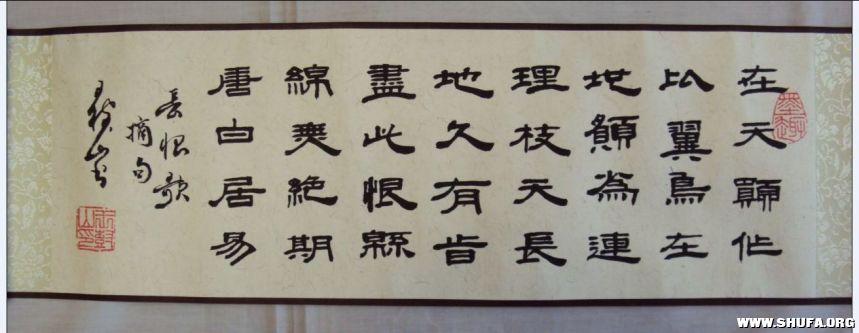 在天願作
比翼鳥在
地願為連
理枝天長
地久有旹
盡此恨緜
綿無絕期
唐白居易
長恨歌
摘句
WWW.SHUFA.ORG